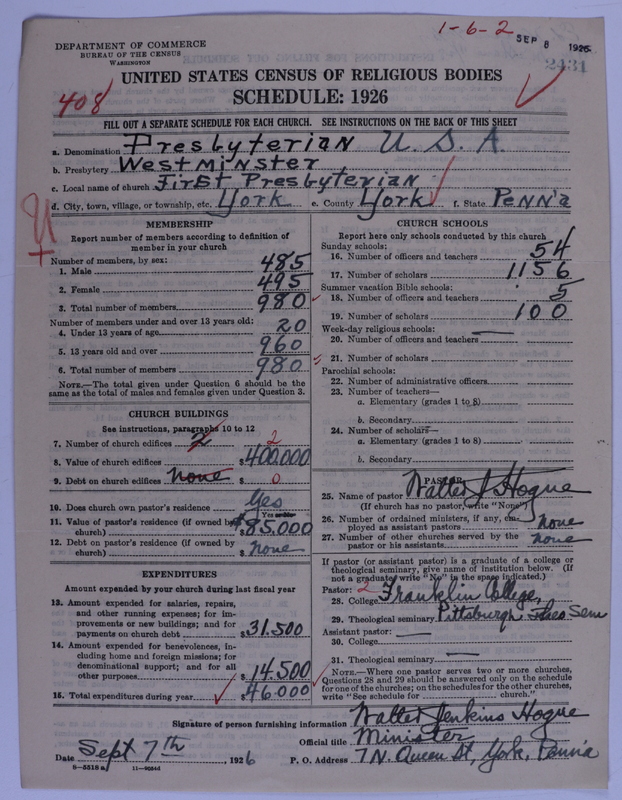 1-6-2
SEP 8 1926
DEPARTMENT OF COMMERCE
BUREAU OF THE CENSUS
WASHINGTON
2431
UNITED STATES CENSUS OF RELIGIOUS BODIES
SCHEDULE: 1926
408
FILL OUT A SEPARATE SCHEDULE FOR EACH CHURCH. SEE INSTRUCTIONS ON THE BACK OF THIS SHEET
a. Denomination Presbyterian U. S. A.
b. Presbytery Westminster
c. Local name of church First Presbyterian
d. City, town, village, or township, etc. York e. County York f. State Penn'a
MEMBERSHIP
Report number of members according to definition of
member in your church
Number of members, by sex:
1. Male 485
2. Female 495
3. Total number of members 980
Number of members under and over 13 years old:
4. Under 13 years of age 20
5. 13 years old and over 960
6. Total number of members 980
NOTE.—The total given under Question 6 should be the
same as the total of males and females given under Question 3.
CHURCH BUILDINGS
See instructions, paragraphs 10 to 12
7. Number of church edifices 2 2
8. Value of church edifices $400,000
9. Debt on church edifices none $ 0
10. Does church own pastor's residence? Yes
11. Value of pastor's residence (if owned by
church) $85,000
12. Debt on pastor's residence (if owned by
church) $ none
EXPENDITURES
Amount expended by your church during last fiscal year
13. Amount expended for salaries, repairs,
and other running expenses; for im-
provements or new buildings; and for
payments on church debt $31.500
14. Amount expended for benevolences, in-
cluding home and foreign missions; for
denominational support; and for all
other purposes $14.500
15. Total expenditures during year $46.000
CHURCH SCHOOLS
Report here only schools conducted by this church
Sunday schools:
16. Number of officers and teachers 54
17. Number of scholars 1156
Summer vacation Bible schools:
18. Number of officers and teachers 5
19. Number of scholars 100
Week-day religious schools:
20. Number of officers and teachers
21. Number of scholars
Parochial schools:
22. Number of administrative officers
23. Number of teachers—
a. Elementary (grades 1 to 8)
b. Secondary
24. Number of scholars—
a. Elementary (grades 1 to 8)
b. Secondary
PASTOR
25. Name of pastor Walter J Hogue
(If church has no pastor, write "None")
26. Number of ordained ministers, if any, em-
ployed as assistant pastors none
27. Number of other churches served by the
pastor or his assistants none
If pastor (or assistant pastor) is a graduate of a college or
theological seminary, give name of institution below. (If
not a graduate write "No" in the space indicated.)
Pastor: 2
28. College Franklin College,
29. Theological seminary Pittsburgh Theo Sem
Assistant pastor:
30. College
31. Theological seminary
NOTE.—Where one pastor serves two or more churches,
Questions 28 and 29 should be answered only on the schedule
for one of the churches; on the schedules for the other churches,
write "See schedule for church."
Signature of person furnishing information Walter Jenkins Hogue
Official title Minister
Date Sept 7th, 1926 P. O. Address 7 N. Queen St, York, Penn'a